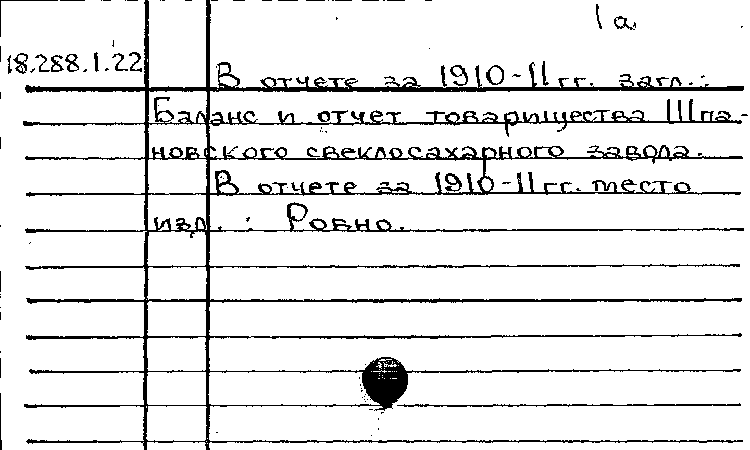 1а
18.288.1.22
В отчете за 1910-11 гг. загл.:
Баланс и отчет товарищества Шпа-
новского свеклосахарного завода.
В отчете за 1910-11 гг. место
изд. : Ровно.